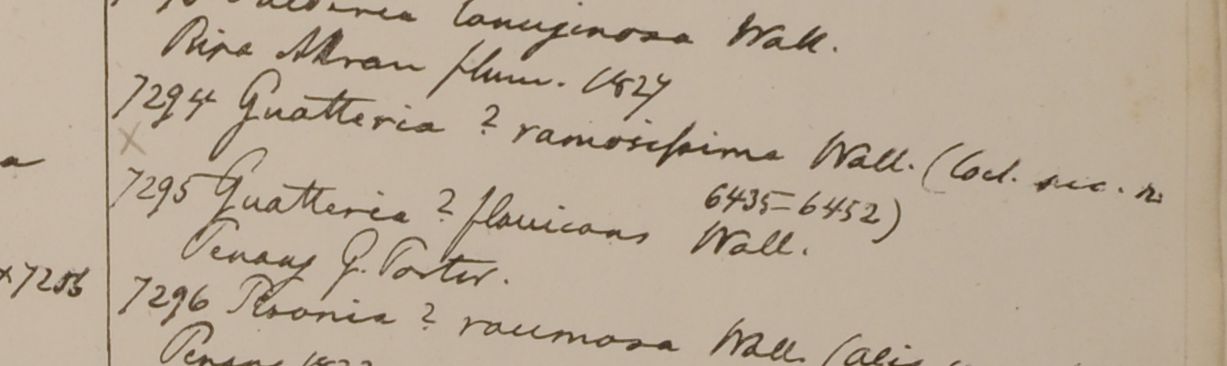 lanuginosa Wall.
Ripa Attran flum. 1827
7294 Guatteria ? ramosissima Wall. (Cod. sic. n.
6435=6452)
7295 Guatteria ? flavicans Wall.
Penang G. Porter.
7296 ? racemosa Wall. (alis
Penang 1822
a